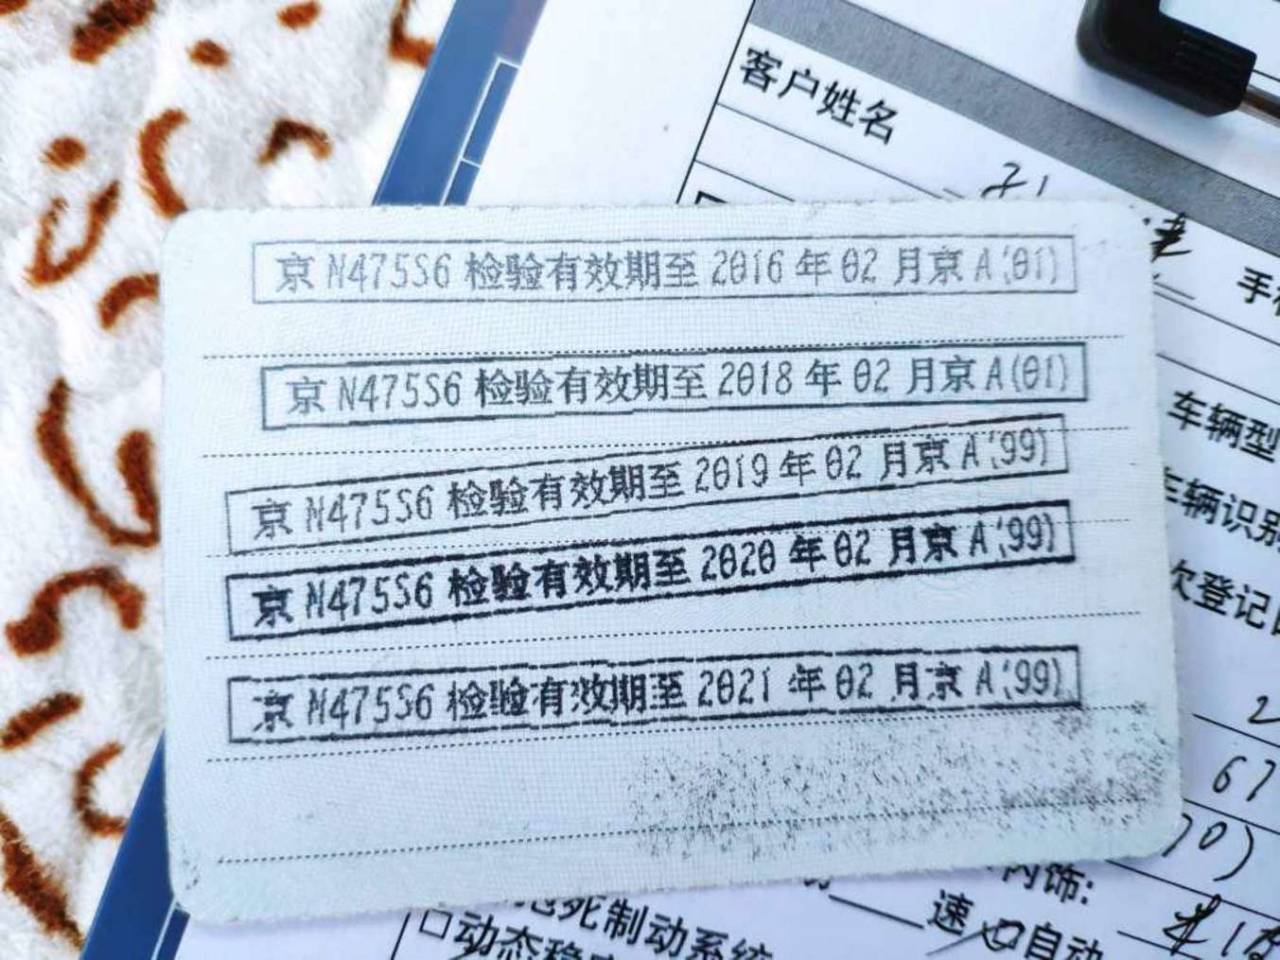 客户姓名
手
京 N475S6 检验有效期至 2016 年 02 月京 A(01)
京 N475S6 检验有效期至 2018 年 02 月京 A(01)
车辆型
京 N475S6 检验有效期至 2019 年 02 月京 A(99)
车辆识别
京 N475S6 检验有效期至 2020 年 02 月京 A(99)
次登记
京 N475S6 检验有效期至 2021 年 02 月京 A(99)
2
67
70)
内饰:
抱死制动系统
速 口自动
口动态稳